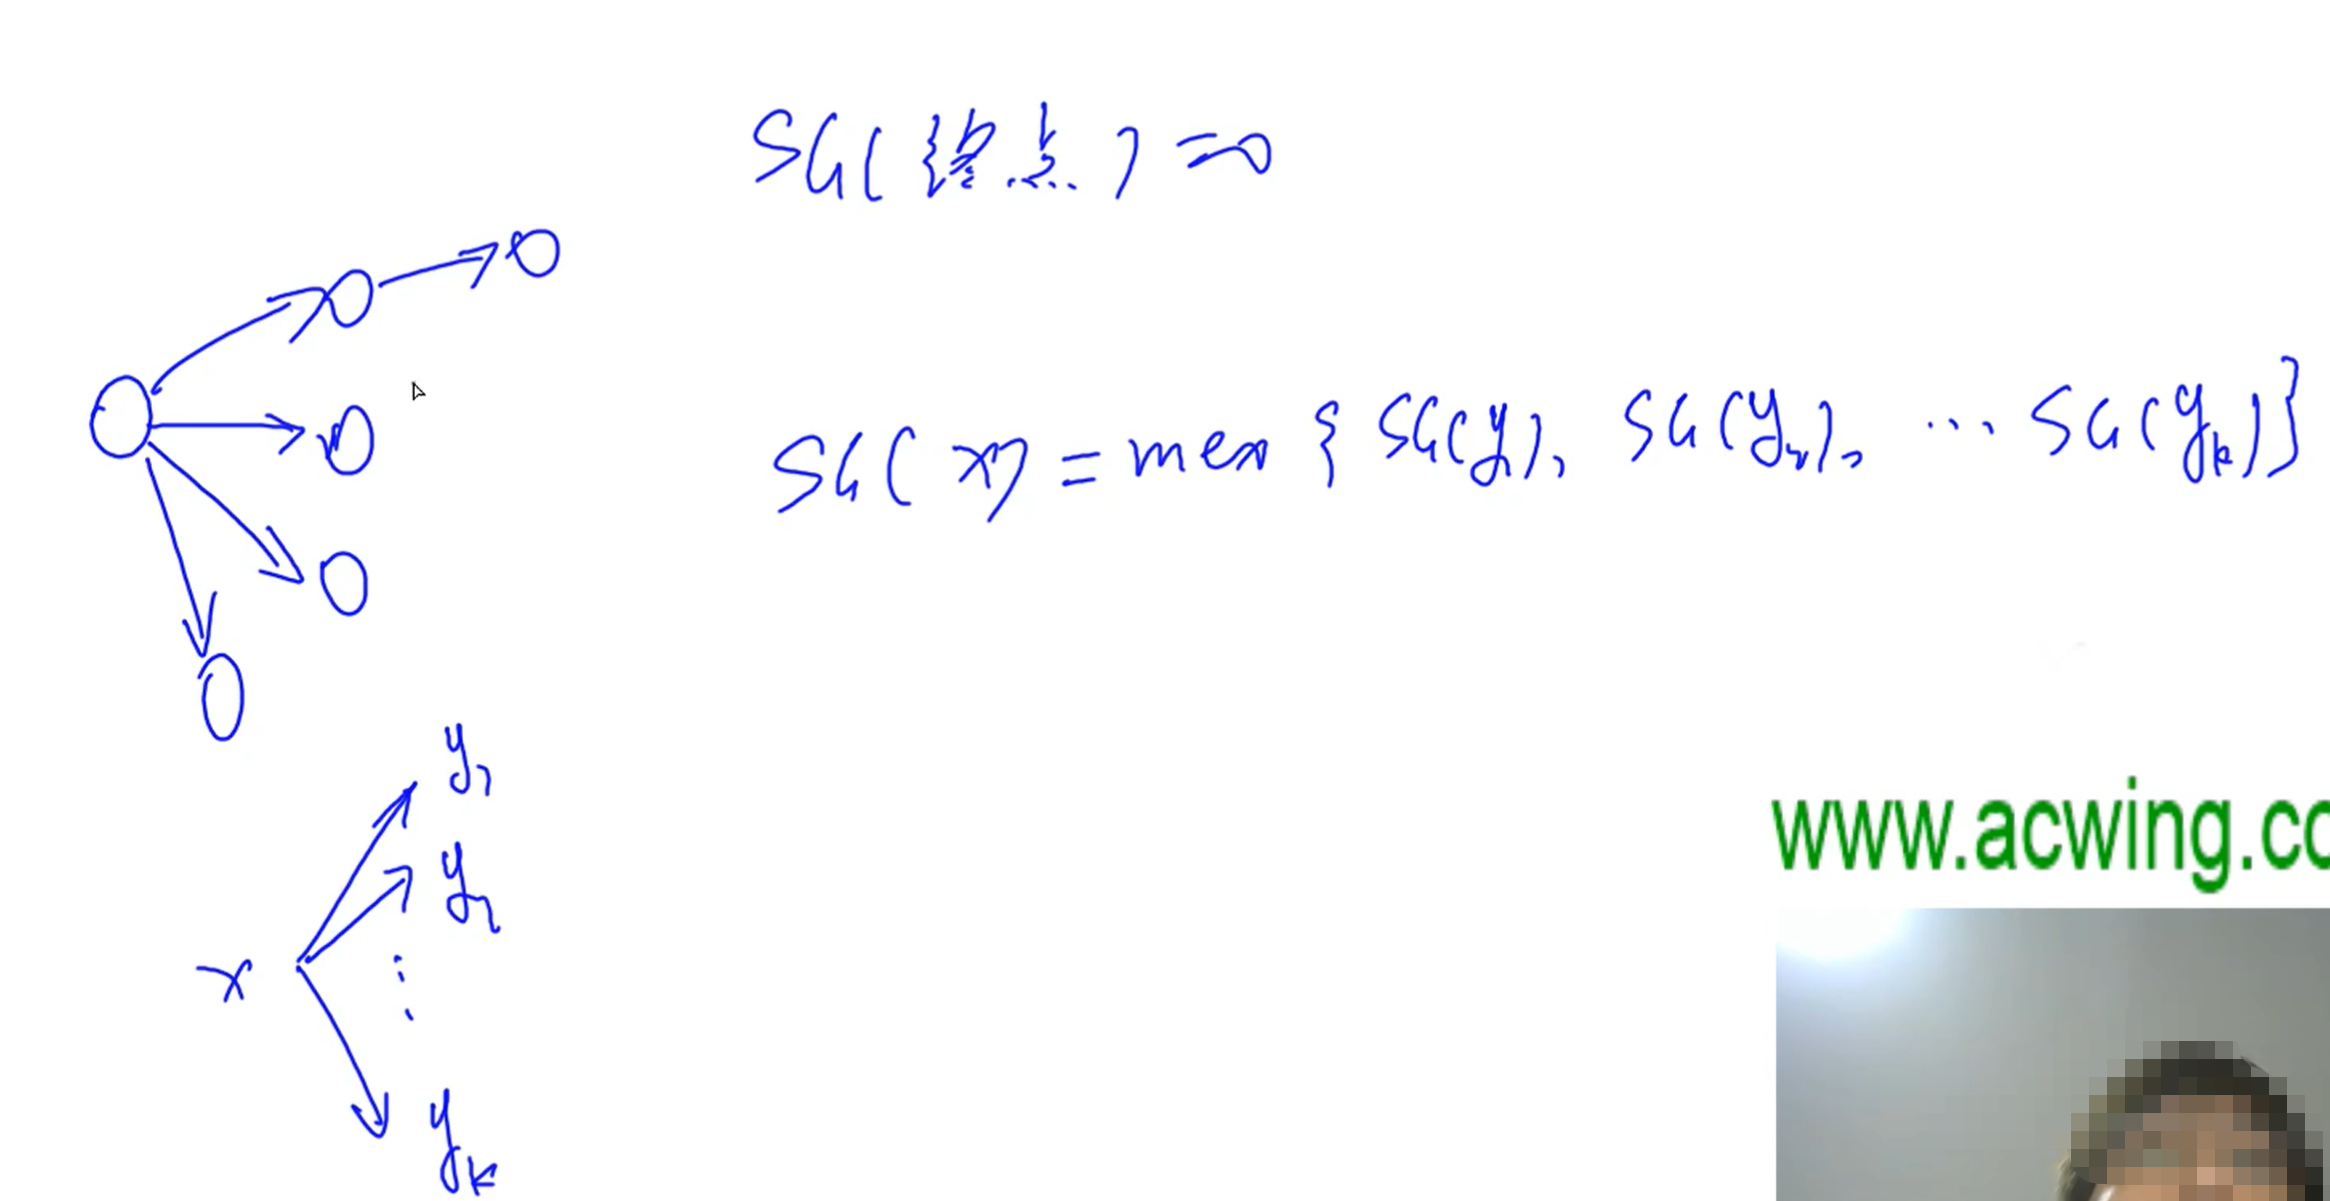 SG(终点) = 0
SG(x) = mex { SG(y₁), SG(y₂), … SG(yₖ)}
y₁
y₂
⋮
x
yₖ
www.acwing.co